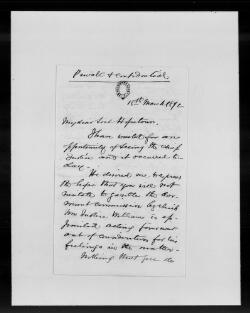 Private & Confidential
15th March 1892
My dear Lord Hopetoun,
I have waited for an
opportunity of seeing the Chief
Justice and it occurred to-
day.
He desired me to express
the hope that you will not
hesitate to gazette the dor-
mant commission by which
Mr Justice Williams is ap-
pointed acting Governor
out of consideration for his
feelings in the matter.
Nothing that you do